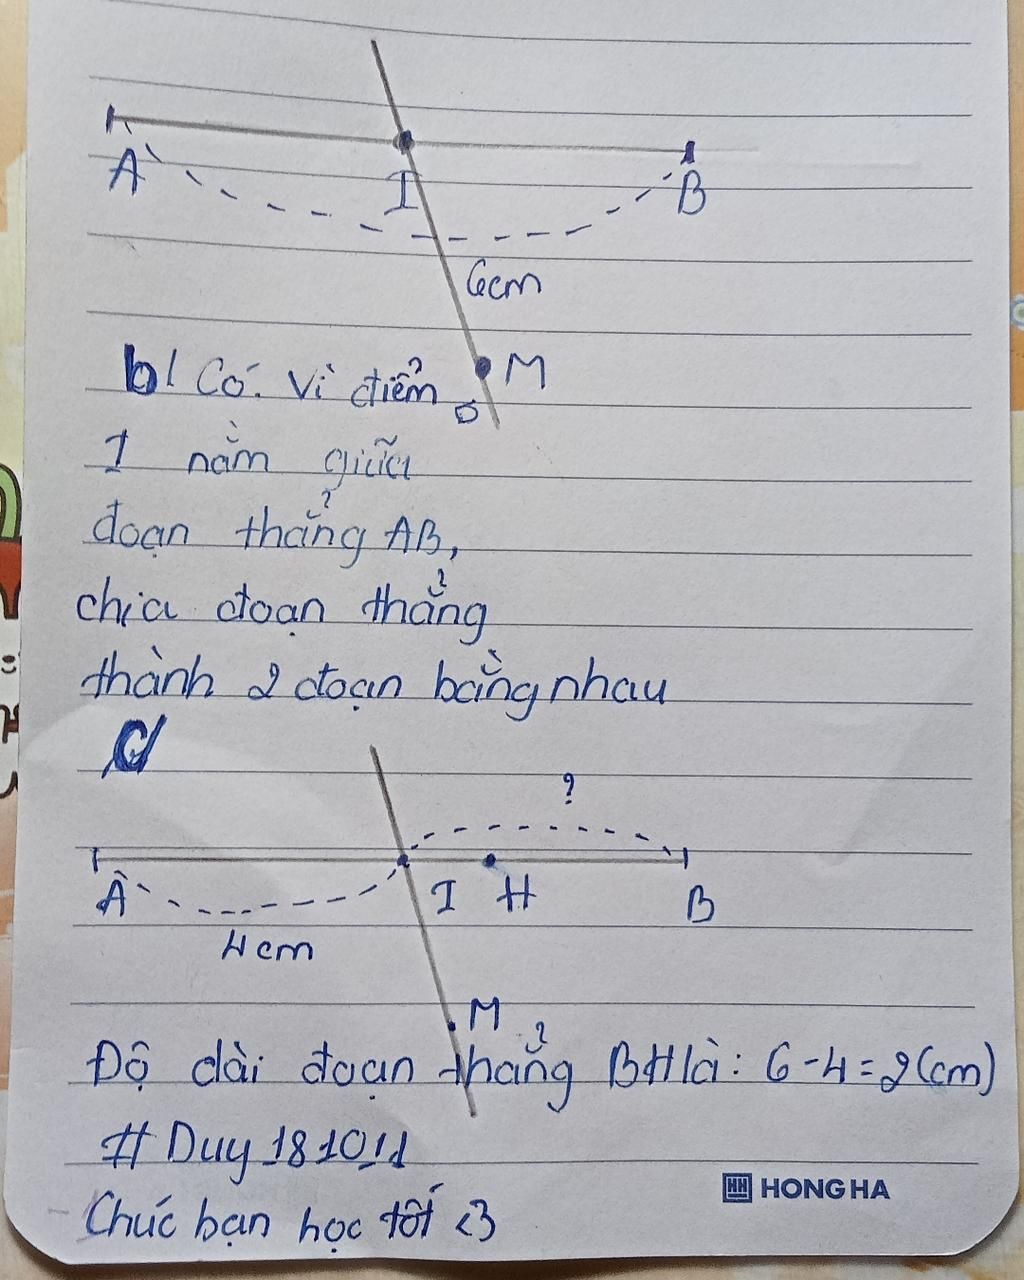 A
I
B
6cm
M
b/ Có. Vì điểm
I nằm giữa
đoạn thẳng AB,
chia đoạn thẳng
thành 2 đoạn bằng nhau
c/
?
A
I H
B
4cm
M
Độ dài đoạn thẳng BH là: 6-4=2(cm)
# Duy 181011
HH HONG HA
- Chúc bạn học tốt <3